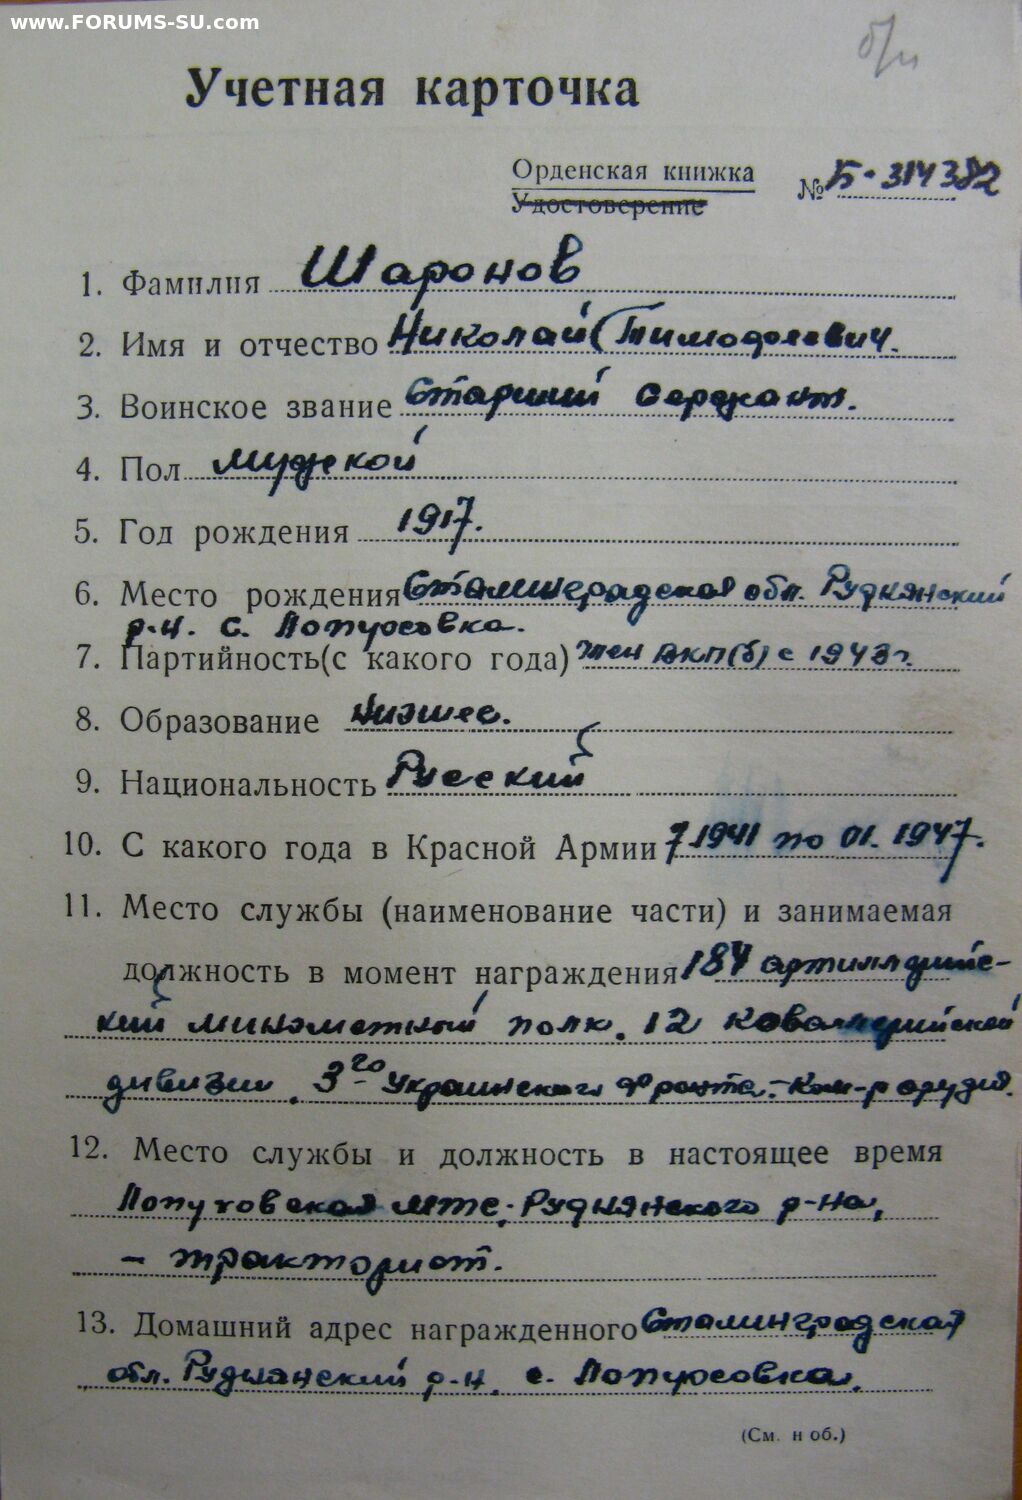 www.FORUMS-SU.com
б/н
Учетная карточка
Орденская книжка
Удостоверение
№ Б-314382
1. Фамилия Шаронов
2. Имя и отчество Николай Тимофеевич.
3. Воинское звание Старший Сержант.
4. Пол мужской
5. Год рождения 1917.
6. Место рождения Сталинградская обл. Руднянский
р-н. с. Лопуховка.
7. Партийность (с какого года) член ВКП(б) с 1943 г.
8. Образование низшее.
9. Национальность Русский
10. С какого года в Красной Армии 7.1941 по 01.1947.
11. Место службы (наименование части) и занимаемая
должность в момент награждения 184 артиллерийс-
кий минометный полк. 12 кавалерийской
дивизии. 3-го Украинского фронта.- Ком-р орудия.
12. Место службы и должность в настоящее время
Лопуховская мтс. Руднянского р-на,
- тракторист.
13. Домашний адрес награжденного Сталинградская
обл. Руднянский р-н. с. Лопуховка.
(См. н об.)